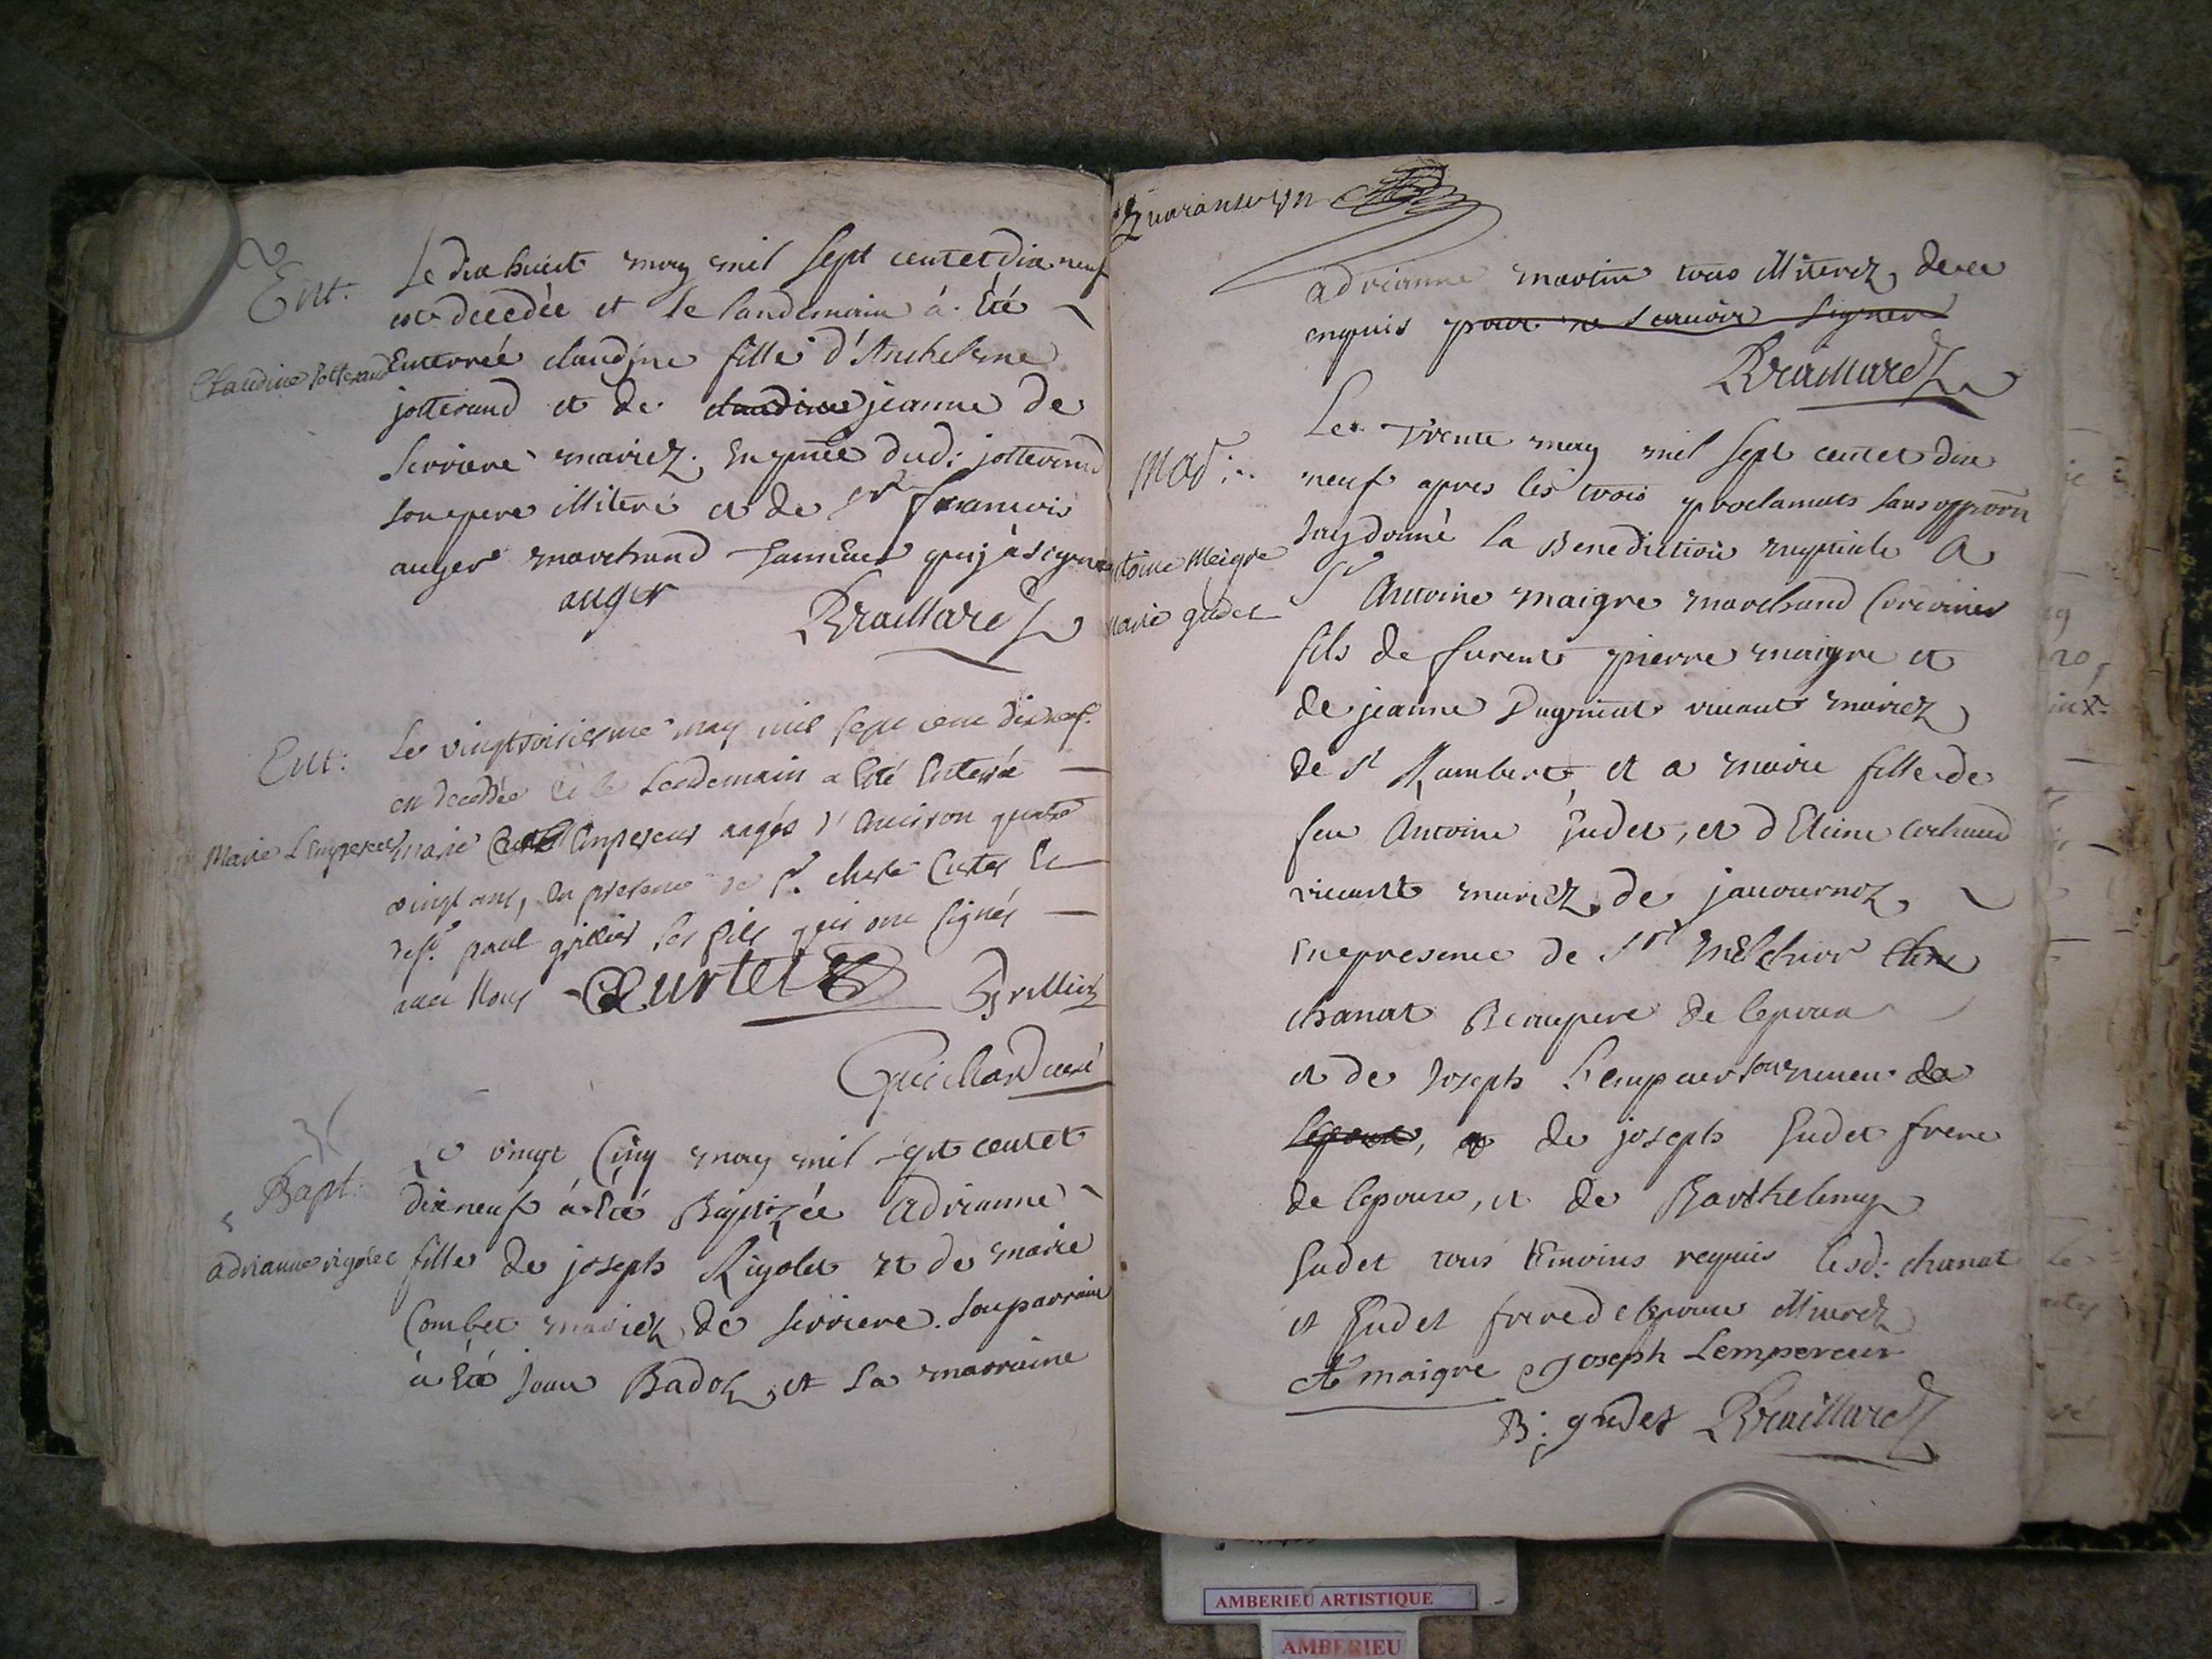 Ent.
Claudine Jotterand
Le dix huict may mil sept cent et dix neuf
est decedée et le landemain á été
Enterreé claudine fille d'Anthelme
jotterand et de claudine jeanne de
serriere mariez. En pnce dud: jotterand
son pere illiteré et de sr francois
auger marchand qui à signé
auger Braillard
Ent:
Marie L'Empereur
Le vingt troisiesme may mil sept cent dix neuf
est decedée et le Lendemain a Eté Enterrée
marie L'empereur aagée d'Environ quatre
vingt ans, En presence de sr. Curtet Et
de sr. paul grillier ses fils qui ont signés
avec Nous Curtet Grillier
Guichard curé
Bapt:
adrianne rigolet
Le vingt Cinq may mil sept cent et
dix neuf á été Baptizée Adrianne
fille de joseph Rigolet et de marie
Combet mariez de serriere. son parrain
à été Jean Badol, et la marraine
Quarante un
adrianne martin tous illiterez, de ce
enquis pour ne scavoir signer
Braillard
Mar:
Antoine Meigre
Marie gudet
Le trente may mil sept cent et dix
neuf apres les trois proclamats sans opp̄on
Jay donné la Benediction nuptiale A
Sr Antoine maigre marchand
fils de furent pierre maigre et
de jeanne Dugniat vivants mariez
de St Rambert, et a marie fille de
feu Antoine Gudet, et d'Etiene cochand
vivants mariez de javournoz,
En presence de Sr Melchior
chanat Beaupere de lepoux
et de Joseph Lempereur son neveu de
lepoux, et de joseph Gudet frere
de lepouse, et de Barthelemy
Gudet tous temoins requis lesd: chanat
et Gudet frere de lepouse illiterez
At maigre Joseph Lempereur
B: gudet Braillard
AMBERIEU ARTISTIQUE
AMBERIEU